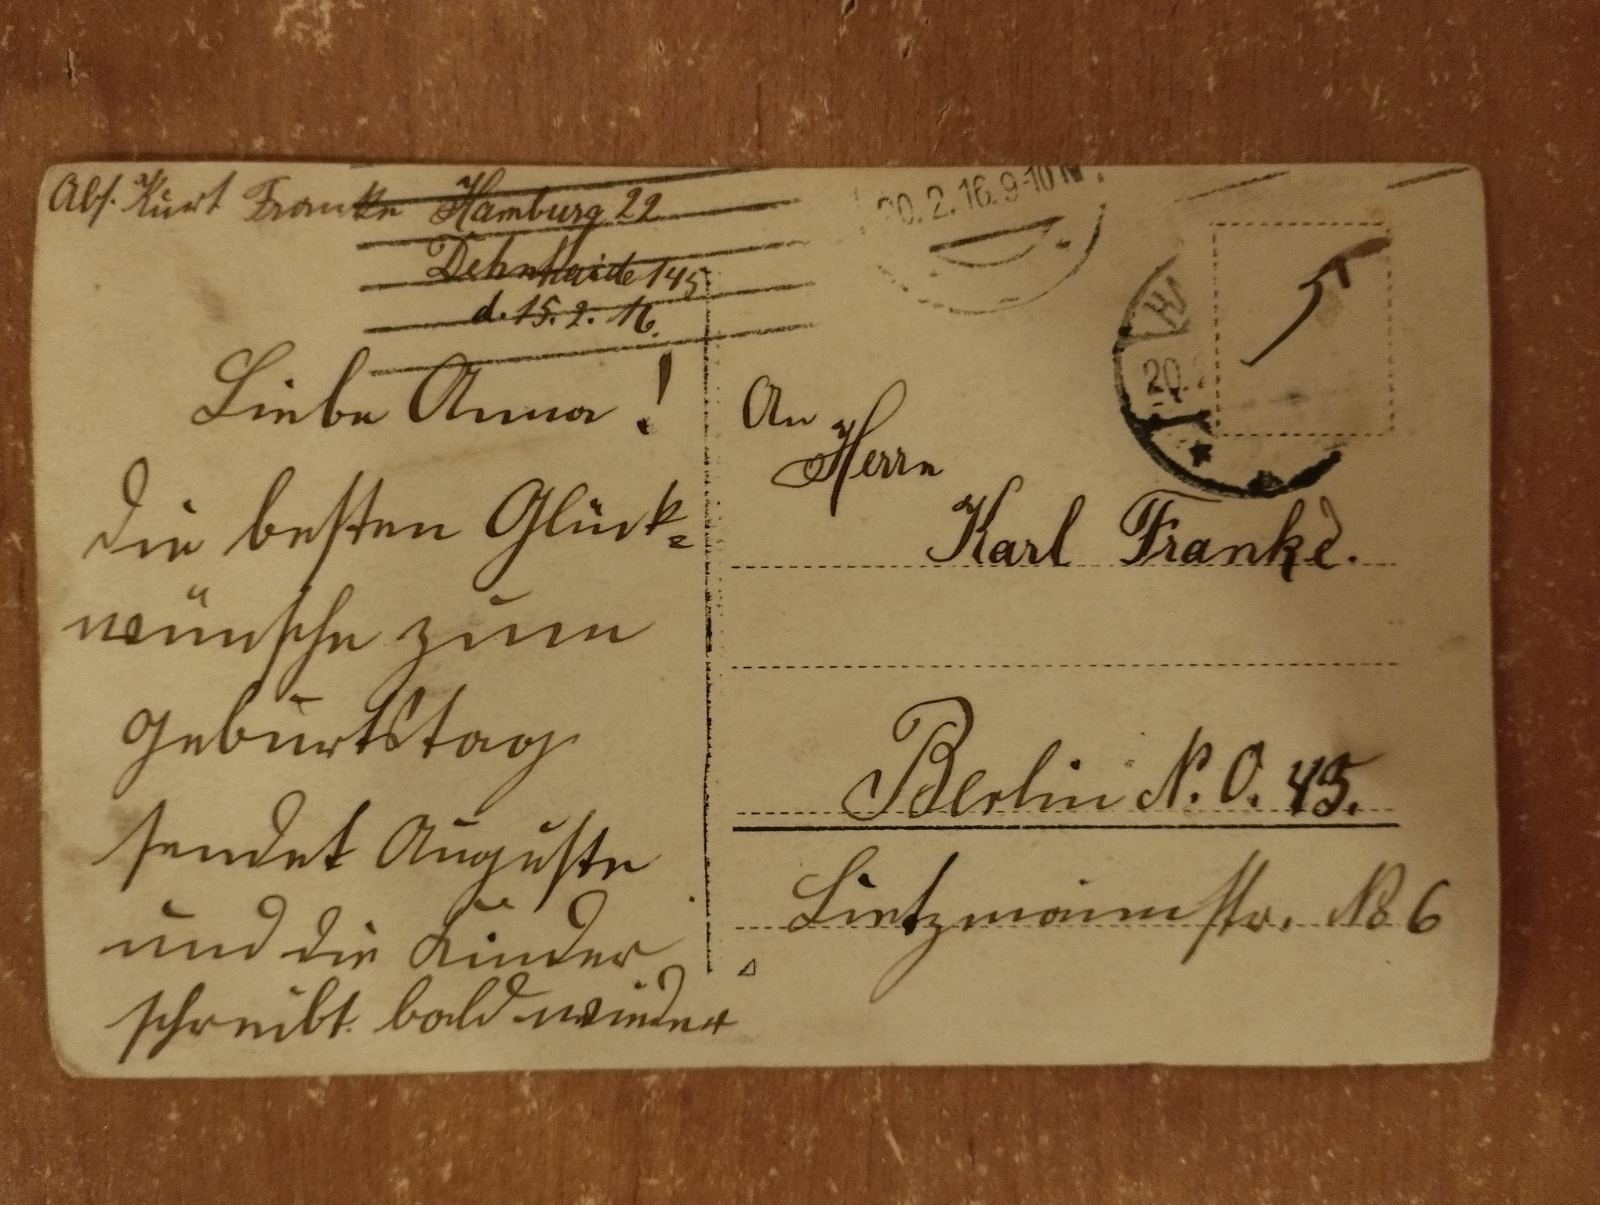 Abs. Kurt Franke Hamburg 22
Dehnhaide 145
d. 15. 2. 16.
Liebe Anna!
die besten Glück=
wünsche zum
geburtstag
sendet Auguste
und die Kinder
schreibt bald wieder
20.2.16.9-10N.
HA
20.2
5
An
Herrn
Karl Franke.
Berlin N.O. 45.
Lietzmannstr. No 6